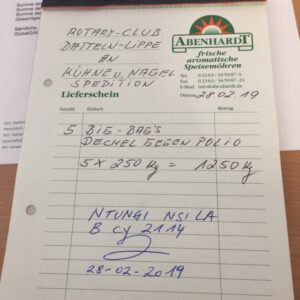 Summe
Summe
Gesamtgew
ROTARY-CLUB
DATTELN-LIPPE
AN
KÜHNE u. NAGEL
SPEDITION
ABENHARDT
frische
aromatische
Speisemöhren
Tel.
Fax
E-Mail info@abenhardt.de
Datum 28.02.19
Lieferschein
Anzahl Einheit Betrag
5 BIG-BAG'S
DECKEL GEGEN POLIO
5 X 250 Kg = 1250 Kg
NTUNGI NSILA
B cy 2114
28-02-2019